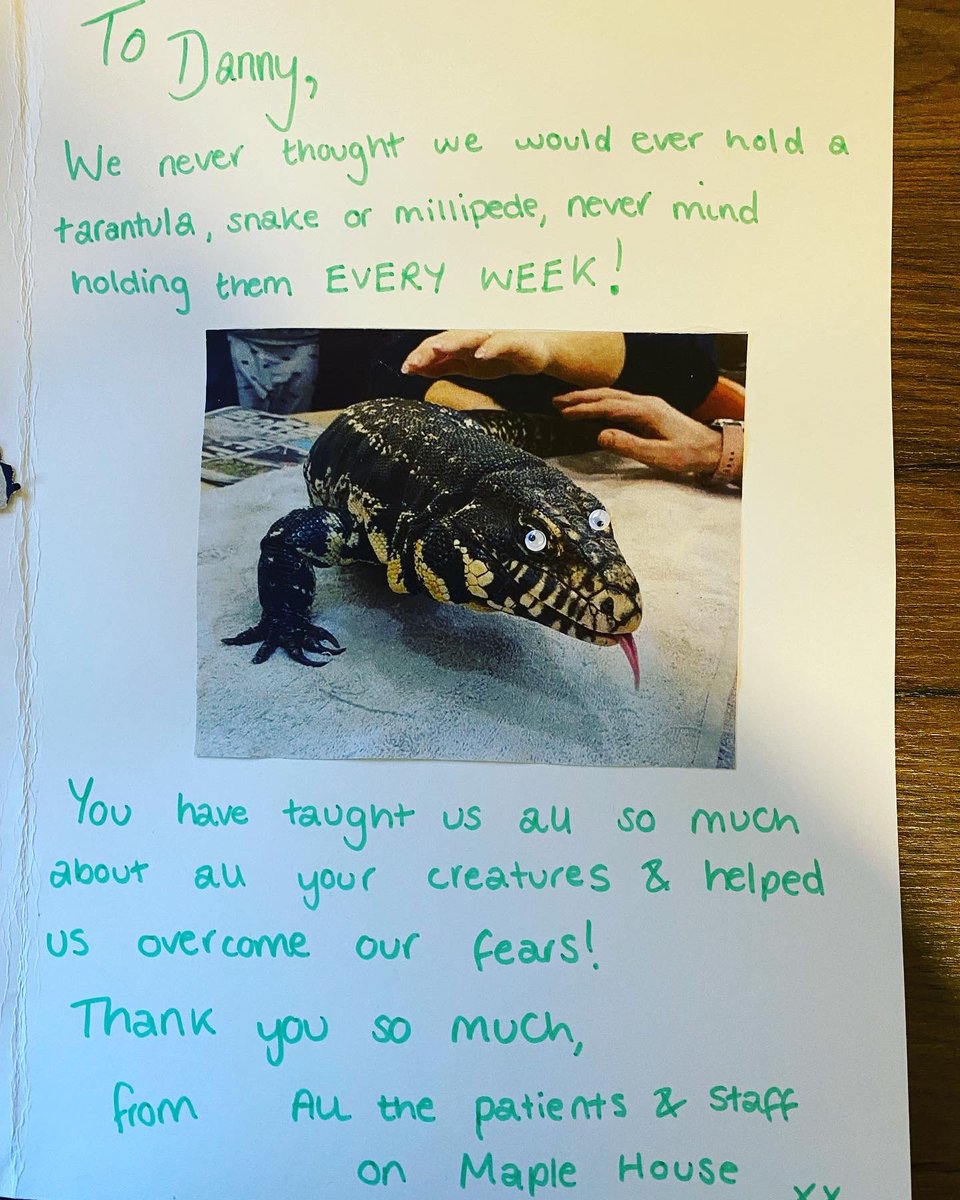 To Danny,
We never thought we would ever hold a
tarantula, snake or millipede, never mind
holding them EVERY WEEK!
You have taught us all so much
about all your creatures & helped
us overcome our fears!
Thank you so much,
from All the patients & Staff
on Maple House
xx